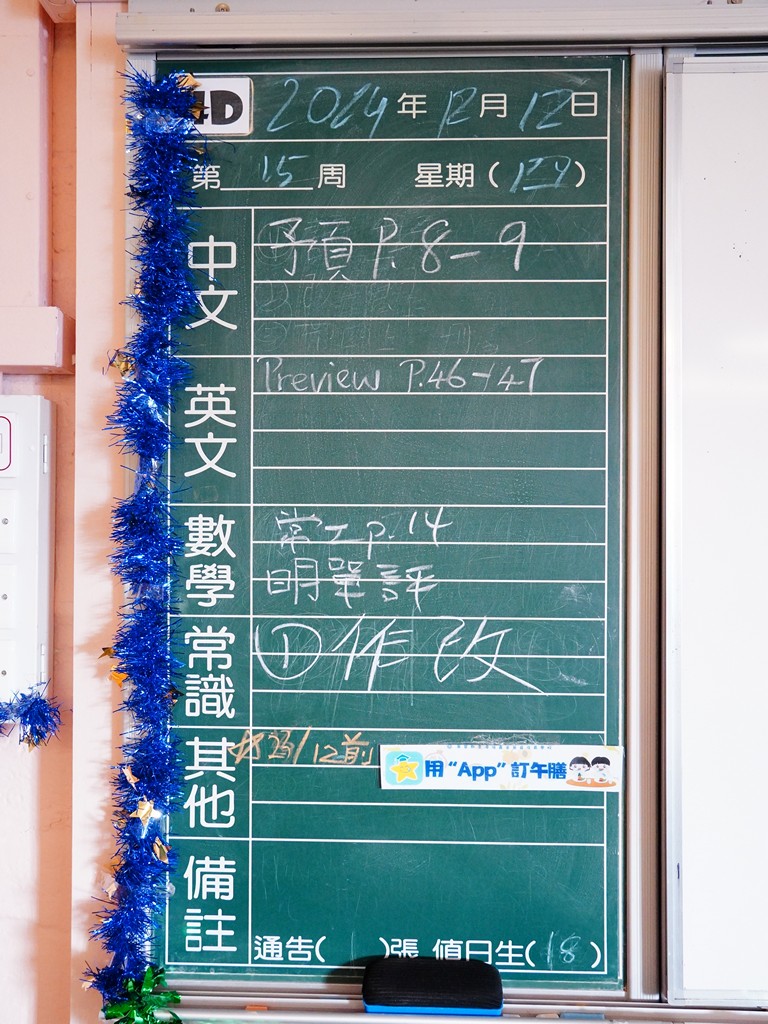 4D 2024年12月12日
第15周 星期(四)
中文
預 P.8-9
英文
Preview P.46-47
數學
常工p.14
明單評
常識
①作改
其他
12前
用“App”訂午膳
備註
通告( )張 值日生(18)